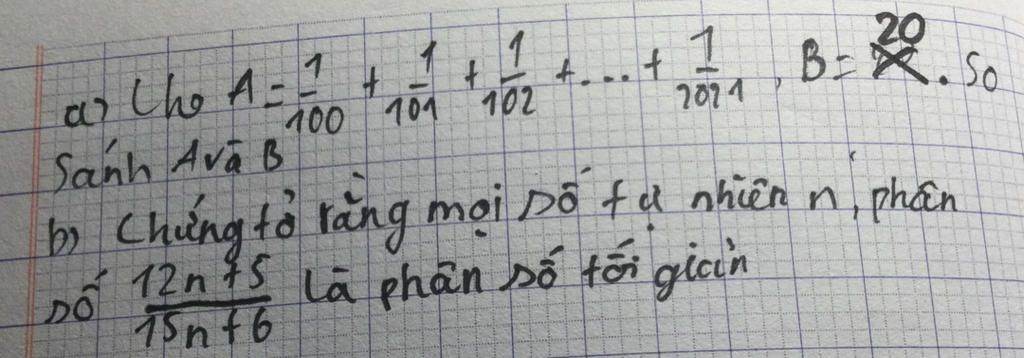 a) Cho A = 1/100 + 1/101 + 1/102 + ... + 1/2021, B = 20. So
Sánh A và B
b) Chứng tỏ rằng mọi số tự nhiên n, phân
số 12n+5/15n+6 là phân số tối giản